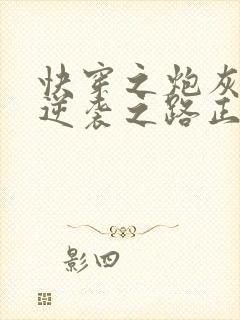 快穿之炮灰
逆袭之路正
影四